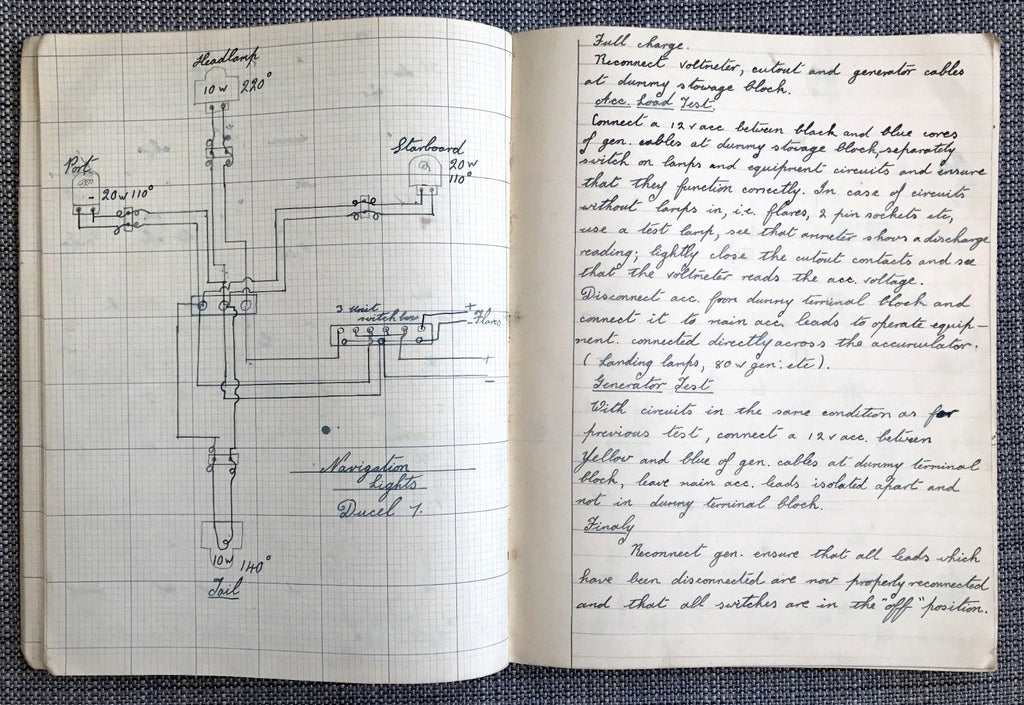 Headlamp
10 w 220°
Port
20 w 110°
Starboard
20 w
110°
3 unit
switch box
+
- Flares
+
-
Navigation
Lights
Ducel 7.
10 w 140°
Tail
Full charge.
Reconnect voltmeter, cutout and generator cables
at dummy stowage block.
Acc. Load Test.
Connect a 12 v acc between black and blue cores
of gen. cables at dummy stowage block, separately
switch on lamps and equipment circuits and ensure
that they function correctly. In case of circuits
without lamps in, i.e. flares, 2 pin sockets etc,
use a test lamp, see that ammeter shows a discharge
reading; lightly close the cutout contacts and see
that the voltmeter reads the acc. voltage.
Disconnect acc. from dummy terminal block and
connect it to main acc. leads to operate equip-
ment. connected directly across the accumulator.
(Landing lamps, 80 w gen: etc).
Generator Test
With circuits in the same condition as for
previous test, connect a 12 v acc. between
yellow and blue of gen. cables at dummy terminal
block, leave main acc. leads isolated apart and
not in dummy terminal block.
Finaly
Reconnect gen. ensure that all leads which
have been disconnected are now properly reconnected
and that all switches are in the "off" position.